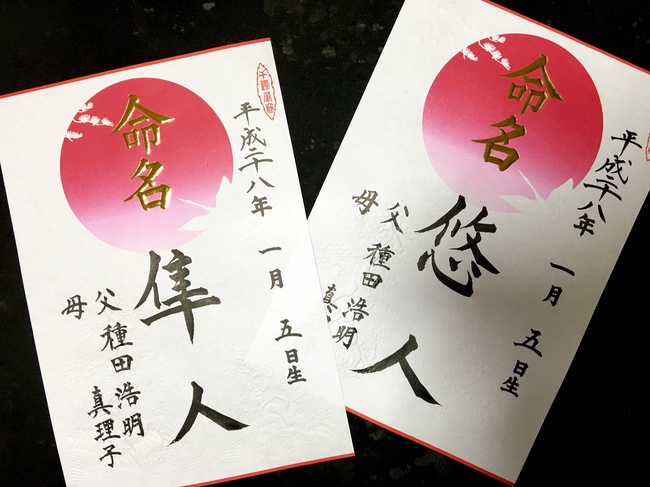 命名
平成二十八年 一月 五日生
隼人
父 種田浩明
母 真理子
命名
平成二十八年 一月 五日生
悠人
父 種田浩明
母 真